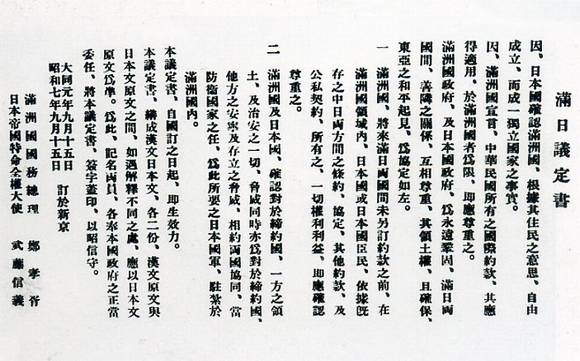 滿日議定書
因、日本國確認滿洲國、根據其住民之意思、自由
成立、而成一獨立國家之事實。
因、滿洲國宣言、中華民國所有之國際約款、其應
得適用、於滿洲國者爲限、即應尊重之。
滿洲國政府、及日本國政府、爲永遠鞏固、滿日兩
國間、善隣之關係、互相尊重、其領土權、且確保、
東亞之和平起見、爲協定如左。
一 滿洲國、將來滿日兩國間未另訂約款之前、在
滿洲國領域內、日本國或日本國臣民、依據旣
存之中日兩方間之條約、協定、其他約款、及
公私契約、所有之、一切權利利益、即應確認
尊重之。
二 滿洲國及日本國、確認對於締約國、一方之領
土、及治安之一切、脅威、同時亦爲對於締約國、
他方之安寧及存立之脅威、相約兩國協同、當
防衞國家之任、爲此所要之日本國軍、駐紮於
滿洲國內。
本議定書、自國訂之日起、即生效力。
本議定書、繕成漢文日本文、各二份、漢文原文與
日本文原文之間、如遇解釋不同之處、應以日本文
原文爲準。爲此、記名兩員、各奉本國政府之正當
委任、將本議定書、簽字蓋印、以昭信守。
大同元年九月十五日
昭和七年九月十五日 訂於新京
滿洲國國務總理 鄭孝胥
日本帝國特命全權大使 武藤信義